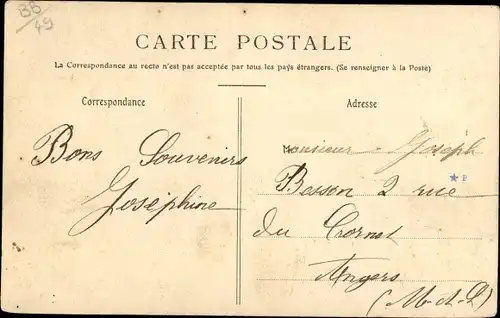 BB
49
CARTE POSTALE
La Correspondance au recto n'est pas acceptée par tous les pays étrangers. (Se renseigner à la Poste)
Correspondance
Adresse
Bons Souvenirs
Joséphine
Monsieur Joseph
Besson 2 rue
du Cornet
Angers
(M-&-L)